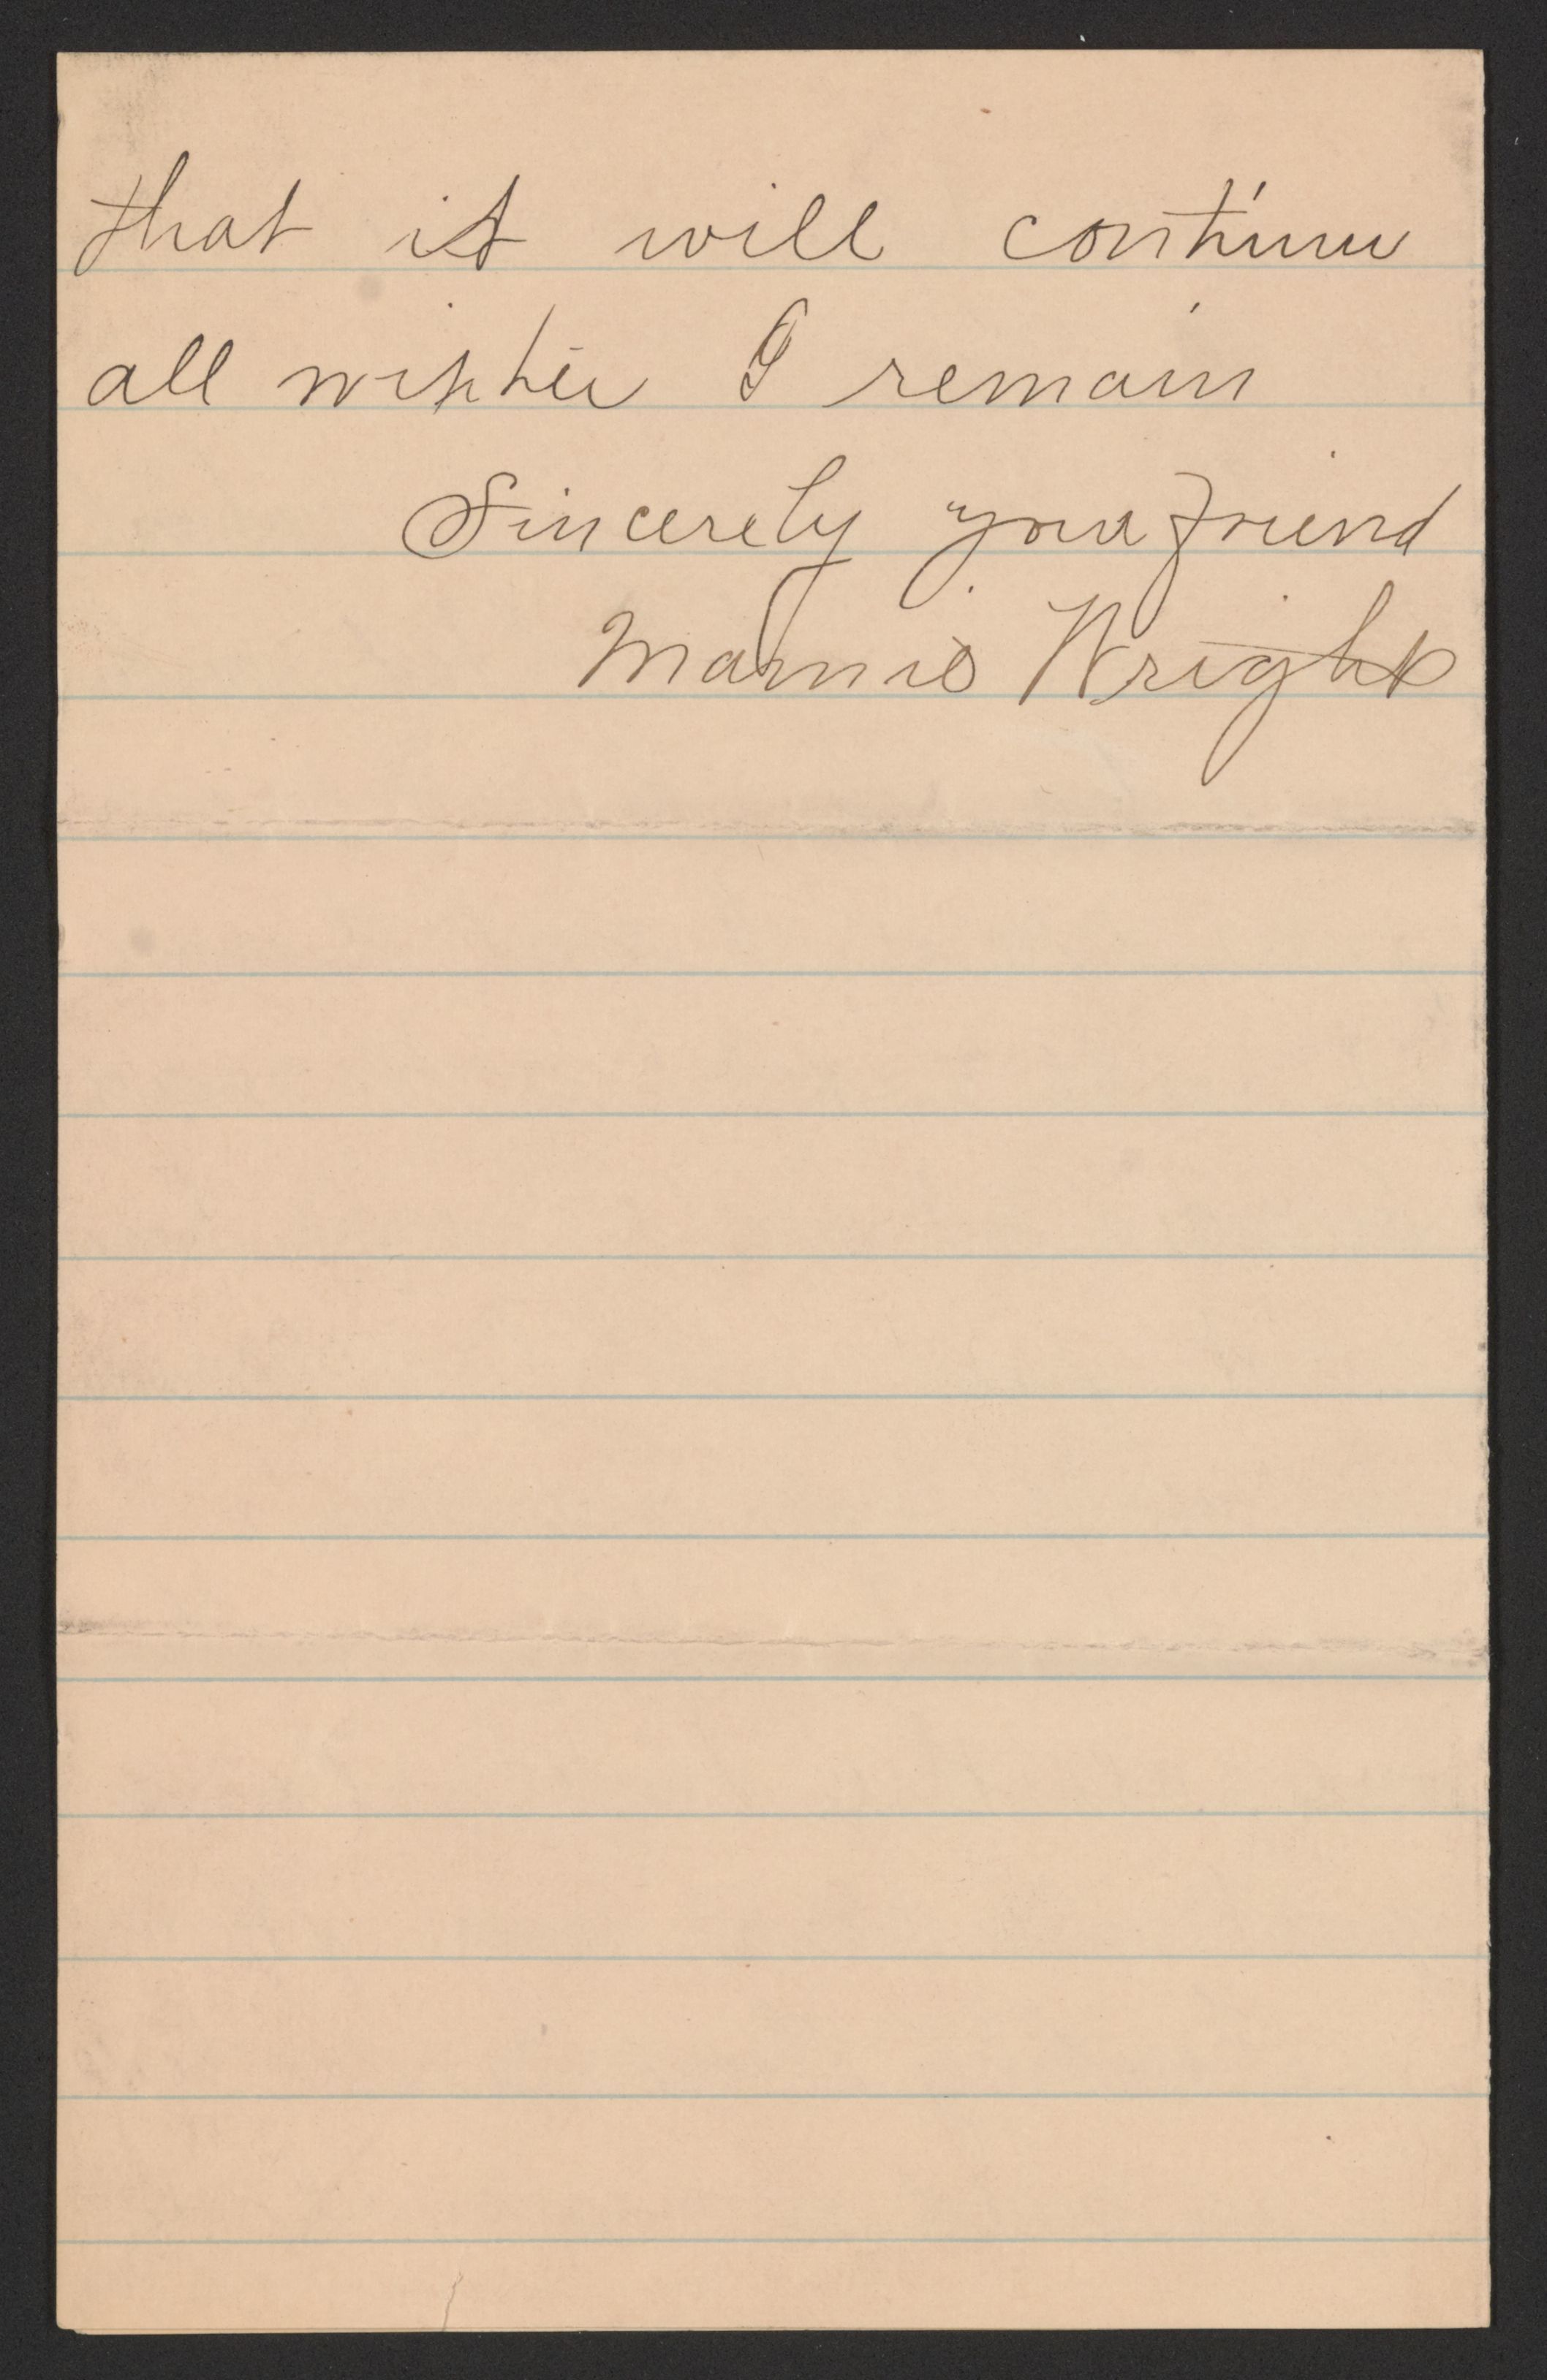 that it will continue
all winter I remain
Sincerely your friend
Mamie Wright